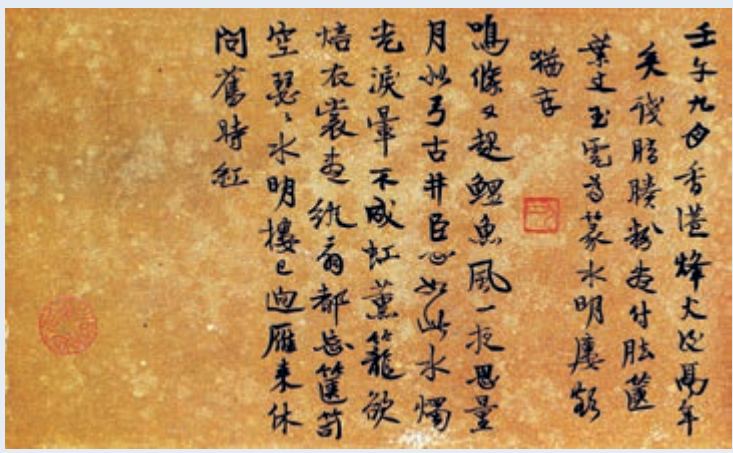 壬午九日香港烽火年
矣殘脂賸粉盡付胠篋
葉丈玉虎為篆水明廔額
猶存
鳴條又起鯉魚風一夜思量
月似弓古井臣心如此水燭
光淚暈不成虹薰籠欲
焙衣裳盡紈扇都忘篋笥
空瑟〻水明樓已迥雁來休
問舊時紅